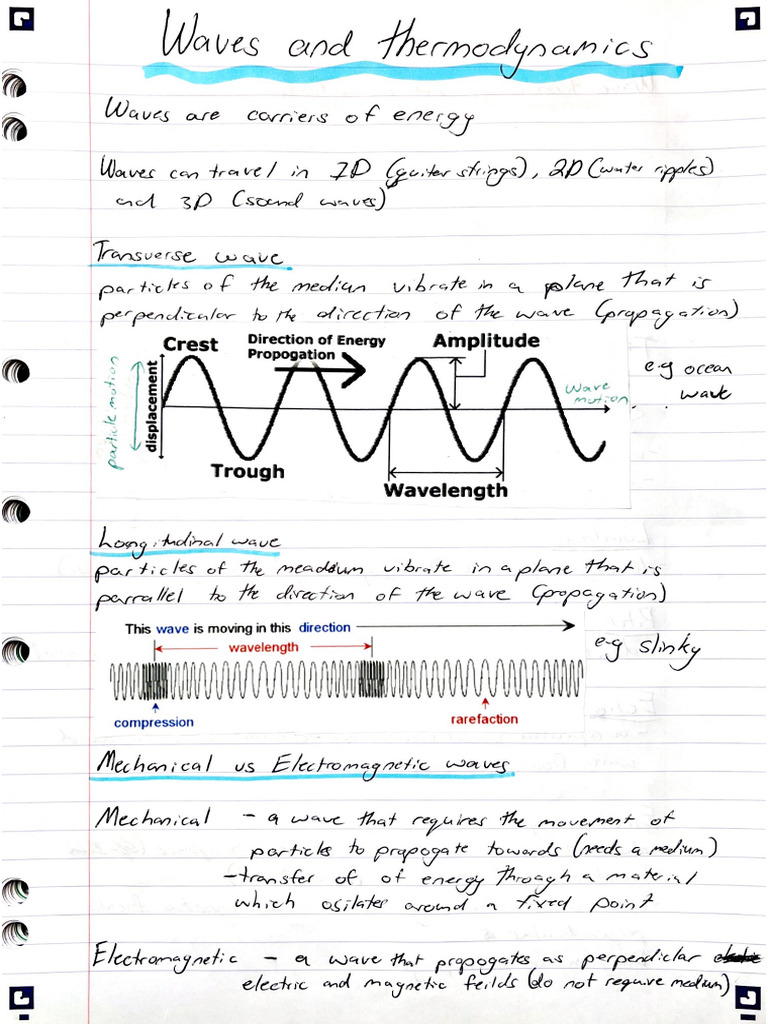 Waves and thermodynamics
Waves are carriers of energy
Waves can travel in 1D (guiter strings), 2D (water ripples)
and 3D (sound waves)
Transverse wave
particles of the median vibrate in a plane that is
perpendicular to the direction of the wave (propagation)
Crest
Direction of Energy
Propogation
Amplitude
e.g ocean
wave
particle motion
displacement
wave
motion
Trough
Wavelength
Longitudinal wave
particles of the meadium vibrate in a plane that is
parrallel to the direction of the wave (propagation)
This wave is moving in this direction
e.g slinky
wavelength
compression
rarefaction
Mechanical vs Electromagnetic waves
Mechanical - a wave that requires the movement of
particles to propogate towards (needs a medium)
- transfer of of energy through a material
which osilates around a fixed point
Electromagnetic - a wave that propogates as perpendiclar
electric and magnetic feilds (do not require medium)